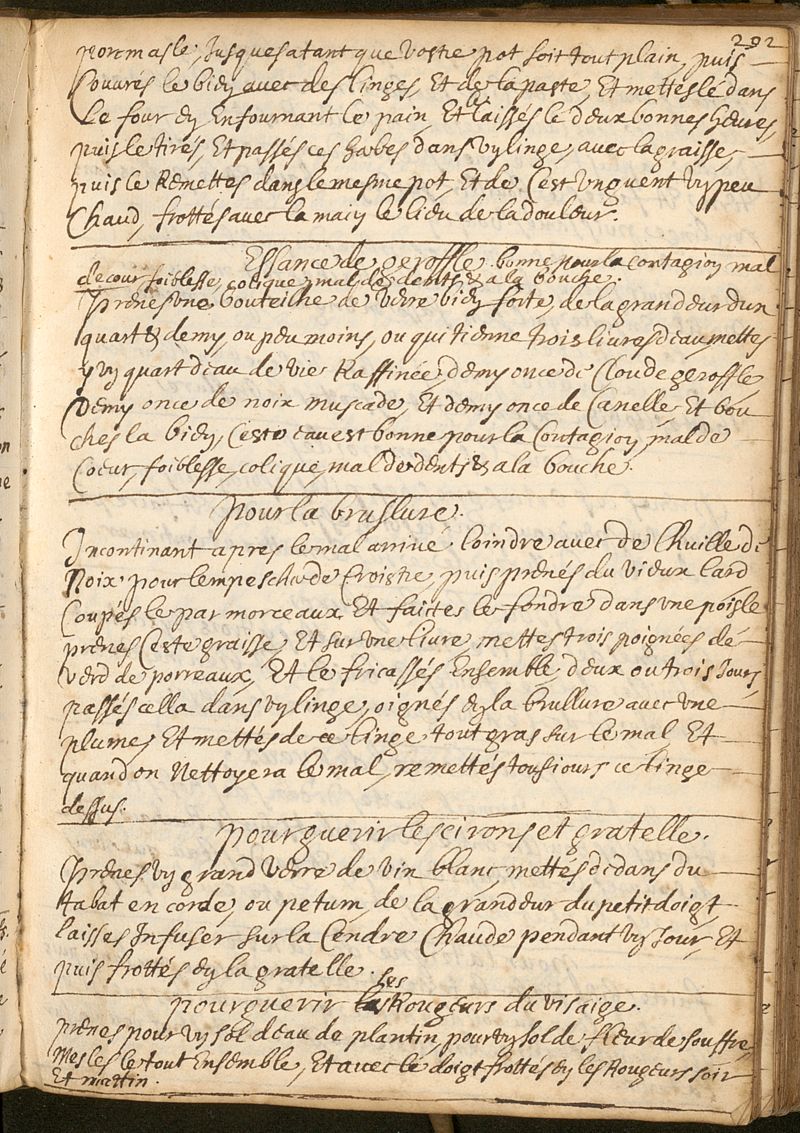 292
porc masle, Jusques a tant que vostre pot soit tout plain, puis
Couvrés le bien avec des linges, Et de la paste, Et mettes le dans
Le four En Enfournant le pain, Et laissés le deux bonnes heures,
puis le tirés, Et passés ces habes dans un linge, avec la graisse,
puis le Remettes dans le mesme pot, Et de Cest Unguent un peu
Chaud, frottés avec la main le lieu de la douleur.
Essance de geroffle bonne pour la Contagion mal
de cœur foiblesse, colique, mal de dents, & a la bouche.
Prenes une bouteilhe de verre bien forte, de la grandeur dun
quart & demy, ou peu moins, ou qui tienne trois livres deau, mettes
y un quart deau de vie Raffinée, demy once de Clou de geroffle,
Demy once de noix muscade, Et demy once de Canelle, Et bou
ches la bien, Ceste eau est bonne pour la Contagion, mal de
Coeur, foiblesse, colique, mal de dents, & a la bouche.
pour la bruslure.
Incontinant apres le mal arrivé loindre avec de Lhuille de
Noix pour lempescher de Croistre, puis prenés du vieux lard
Coupés le par morceaux, Et faictes le fondre dans une poisle
prenes Ceste graisse, Et sur une livre, mettes trois poignées de
verd de porreaux, Et le fricassés Ensemble, deux ou trois Jours
passés cella dans un linge, oignés En la brullure avec une
plume, Et mettés de ce linge tout gras sur le mal Et
quand on Nettoyera le mal, remettés tousiours ce linge
dessus.
pour guerir les cirons et gratelle.
Prenes un grand verre de vin blanc, mettes dedans du
tabat en corde, ou petum, de la grandeur du petit doigt,
laisses Infuser sur la Cendre Chaude pendant un Jour, Et
puis frottés En la gratelle.
pour guerir les Rougeurs du visaige.
prenes pour un sol deau de plantin, pour un sol de fleur de souffre,
Mesles le tout Ensemble, Et avec le doigt frottés En les Rougeurs soir
Et mattin.